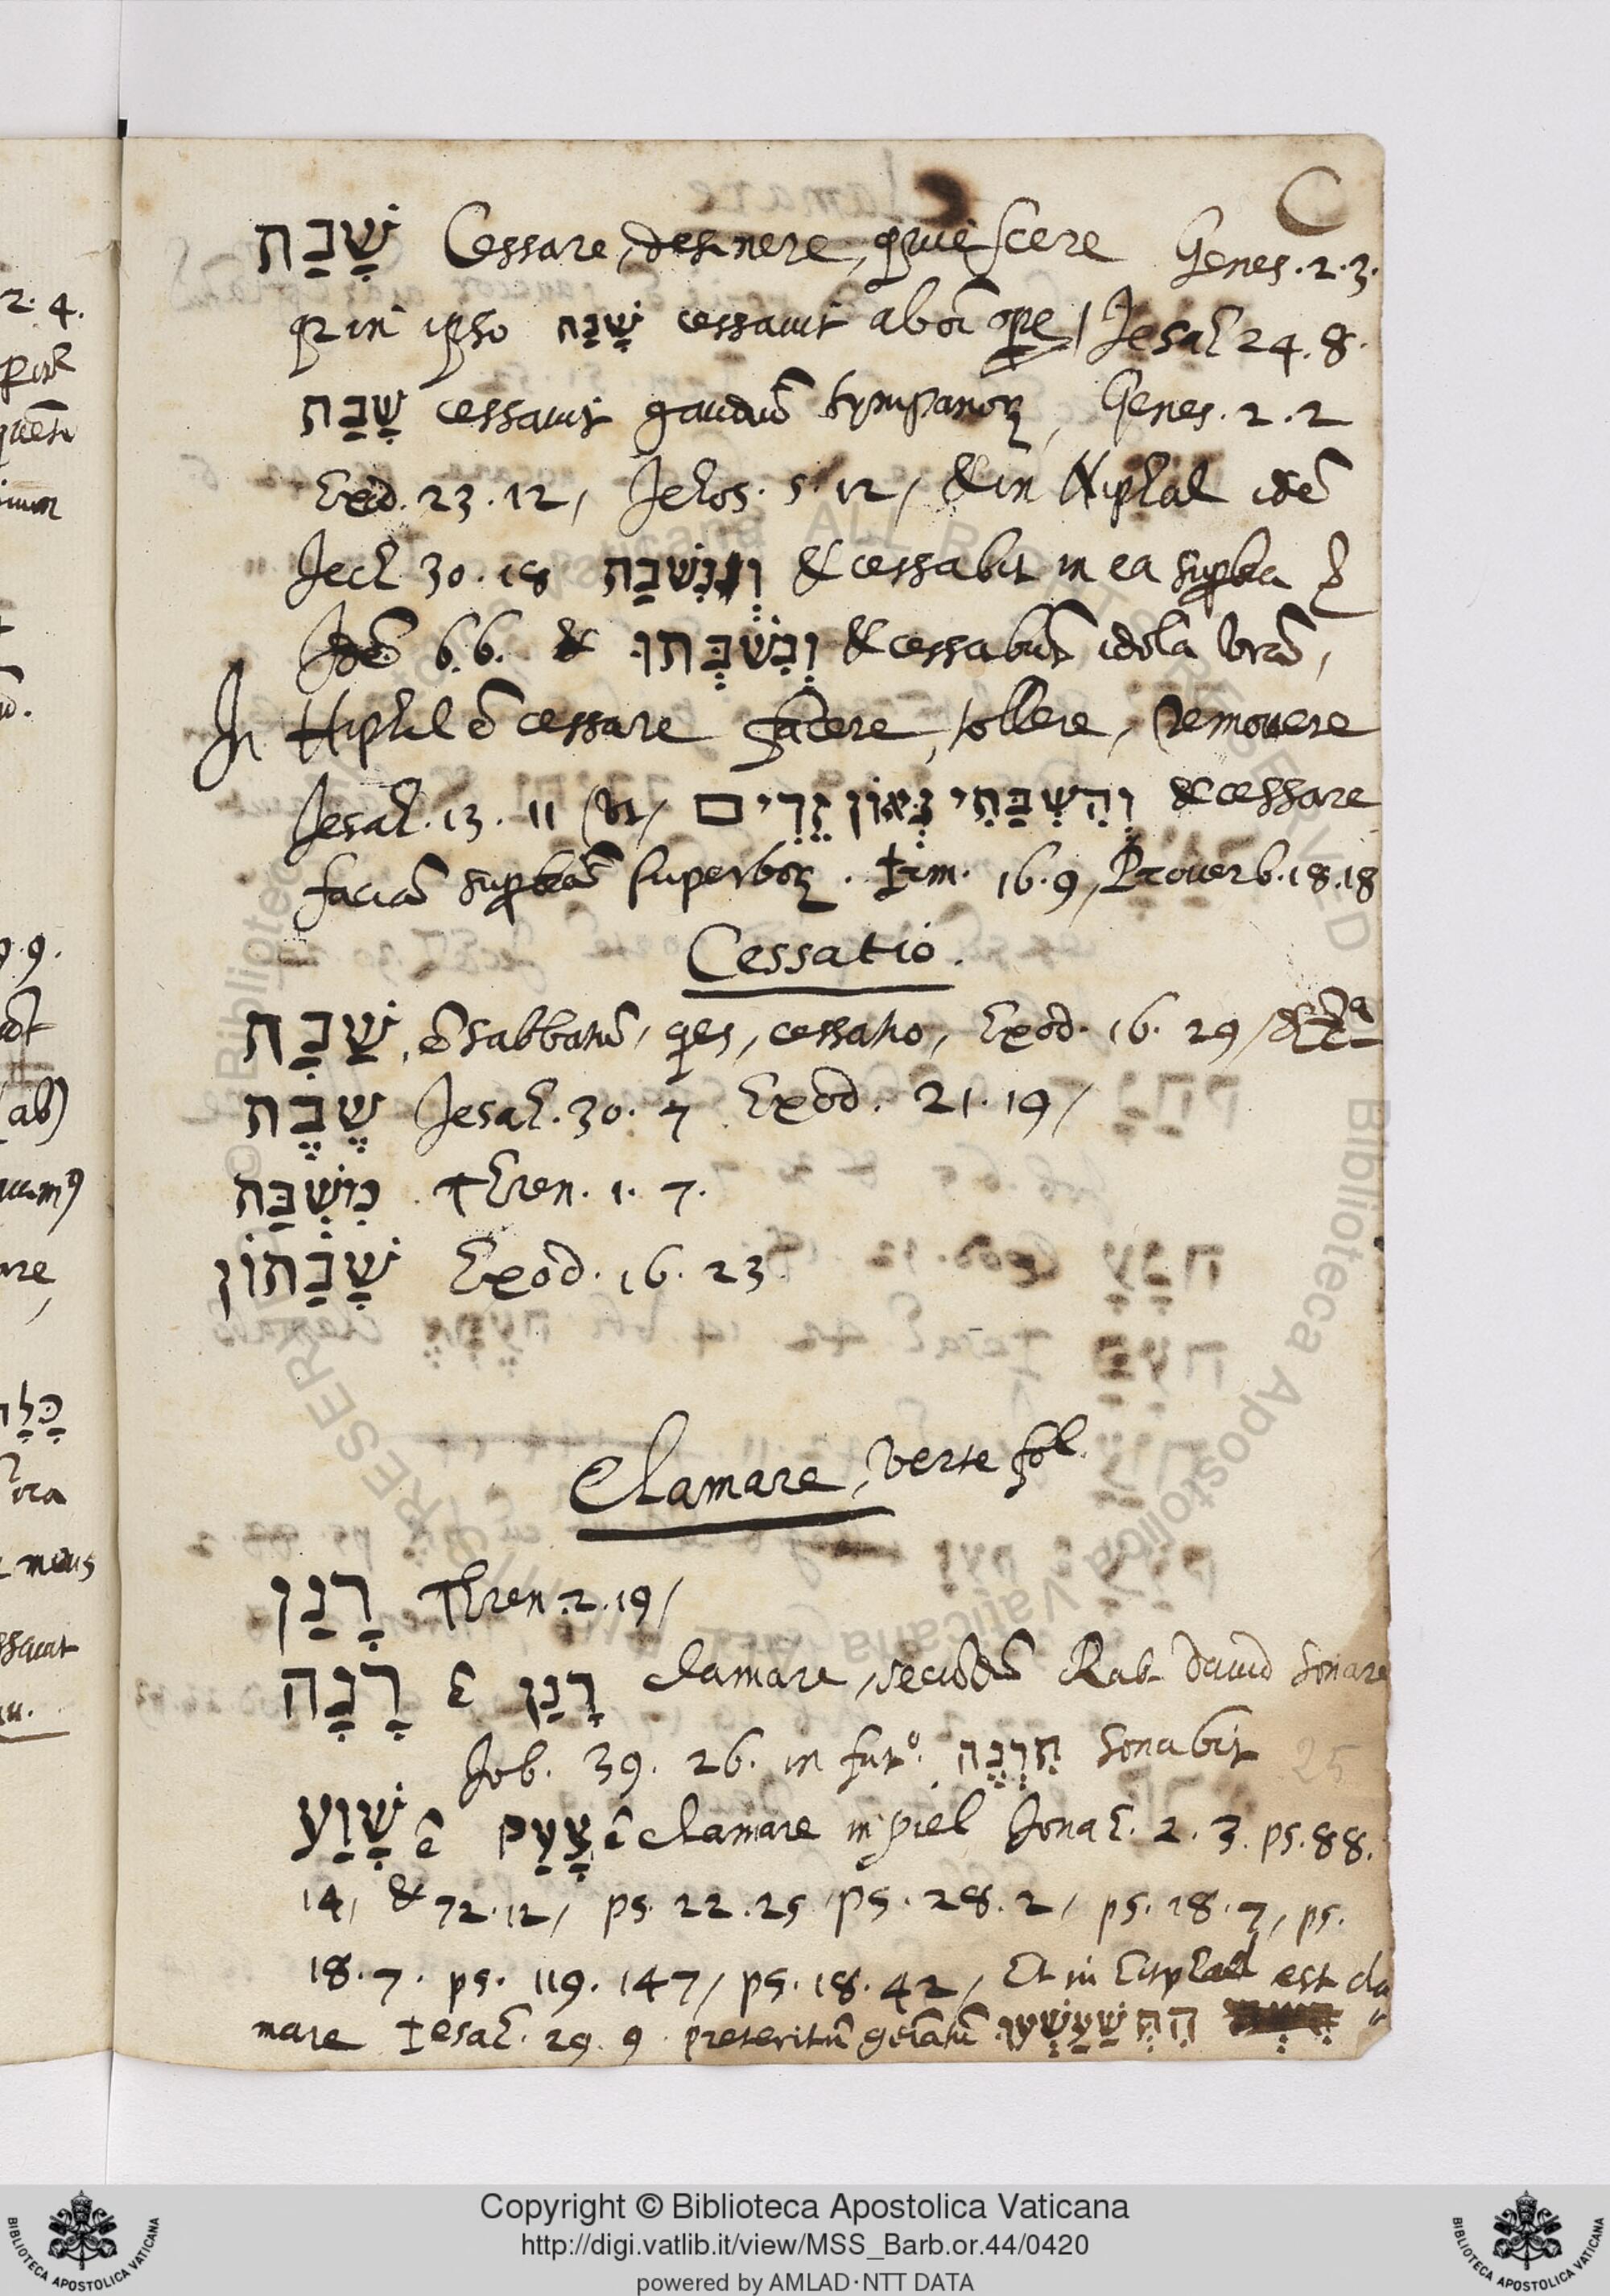 C
שָׁבַת Cessare, desinere, quiescere Genes. 2. 3.
qz in ipso שָׁבַת cessavit ab oī ope / Jesah 24. 8.
שָׁבַת cessavit gaudiū tympanoꝝ, Genes. 2. 2
Exod. 23. 12, Jehos. 5. 12, & in Niphal idē
Jech 30. 18 וְנִשְׁבַּת & cessabit in ea supbia
Idē 6. 6. & וְנִשְׁבְּתוּ & cessabūt idola vrā,
In Hiphil ē cessare facere, tollere, removere
Jesah. 13. 11 וְהִשְׁבַּתִּי גְּאוֹן זֵדִים & cessare
faciā supbiā superboꝝ. Irm. 16. 9, Proverb. 18. 18
Cessatio.
שַׁבָּת, ē sabbatū, qes, cessatio, Exod. 16. 29 /
שֶׁבֶת Jesah. 30. 7 Exod. 21. 19 /
מִשְׁבַּת Thren. 1. 7.
שַׁבָּתוֹן Exod. 16. 23
Clamare, verte fol.
רָנַן Thren. 2. 19 /
רָנָה ē רָנַן clamare, secūdū Rab David sonare
Job. 39. 26. in futº. תִּרְנֶה sonabit 25
שָׁוַע ē צָעַק ē clamare in piel Jonah. 2. 3. ps. 88.
14, & 72. 12, ps. 22. 25 ps. 28. 2, ps. 18. 7, ps.
18. 7. ps. 119. 147, ps. 18. 42, Et in Hitphael est cla
mare Iesah. 29. 9. preteritū gēīatū הִתְשַׁעַשְׁעוּ
2. 4.
9. 9.
(ab)
meus
Copyright © Biblioteca Apostolica Vaticana
http://digi.vatlib.it/view/MSS_Barb.or.44/0420
powered by AMLAD·NTT DATA
BIBLIOTECA APOSTOLICA VATICANA
BIBLIOTECA APOSTOLICA VATICANA